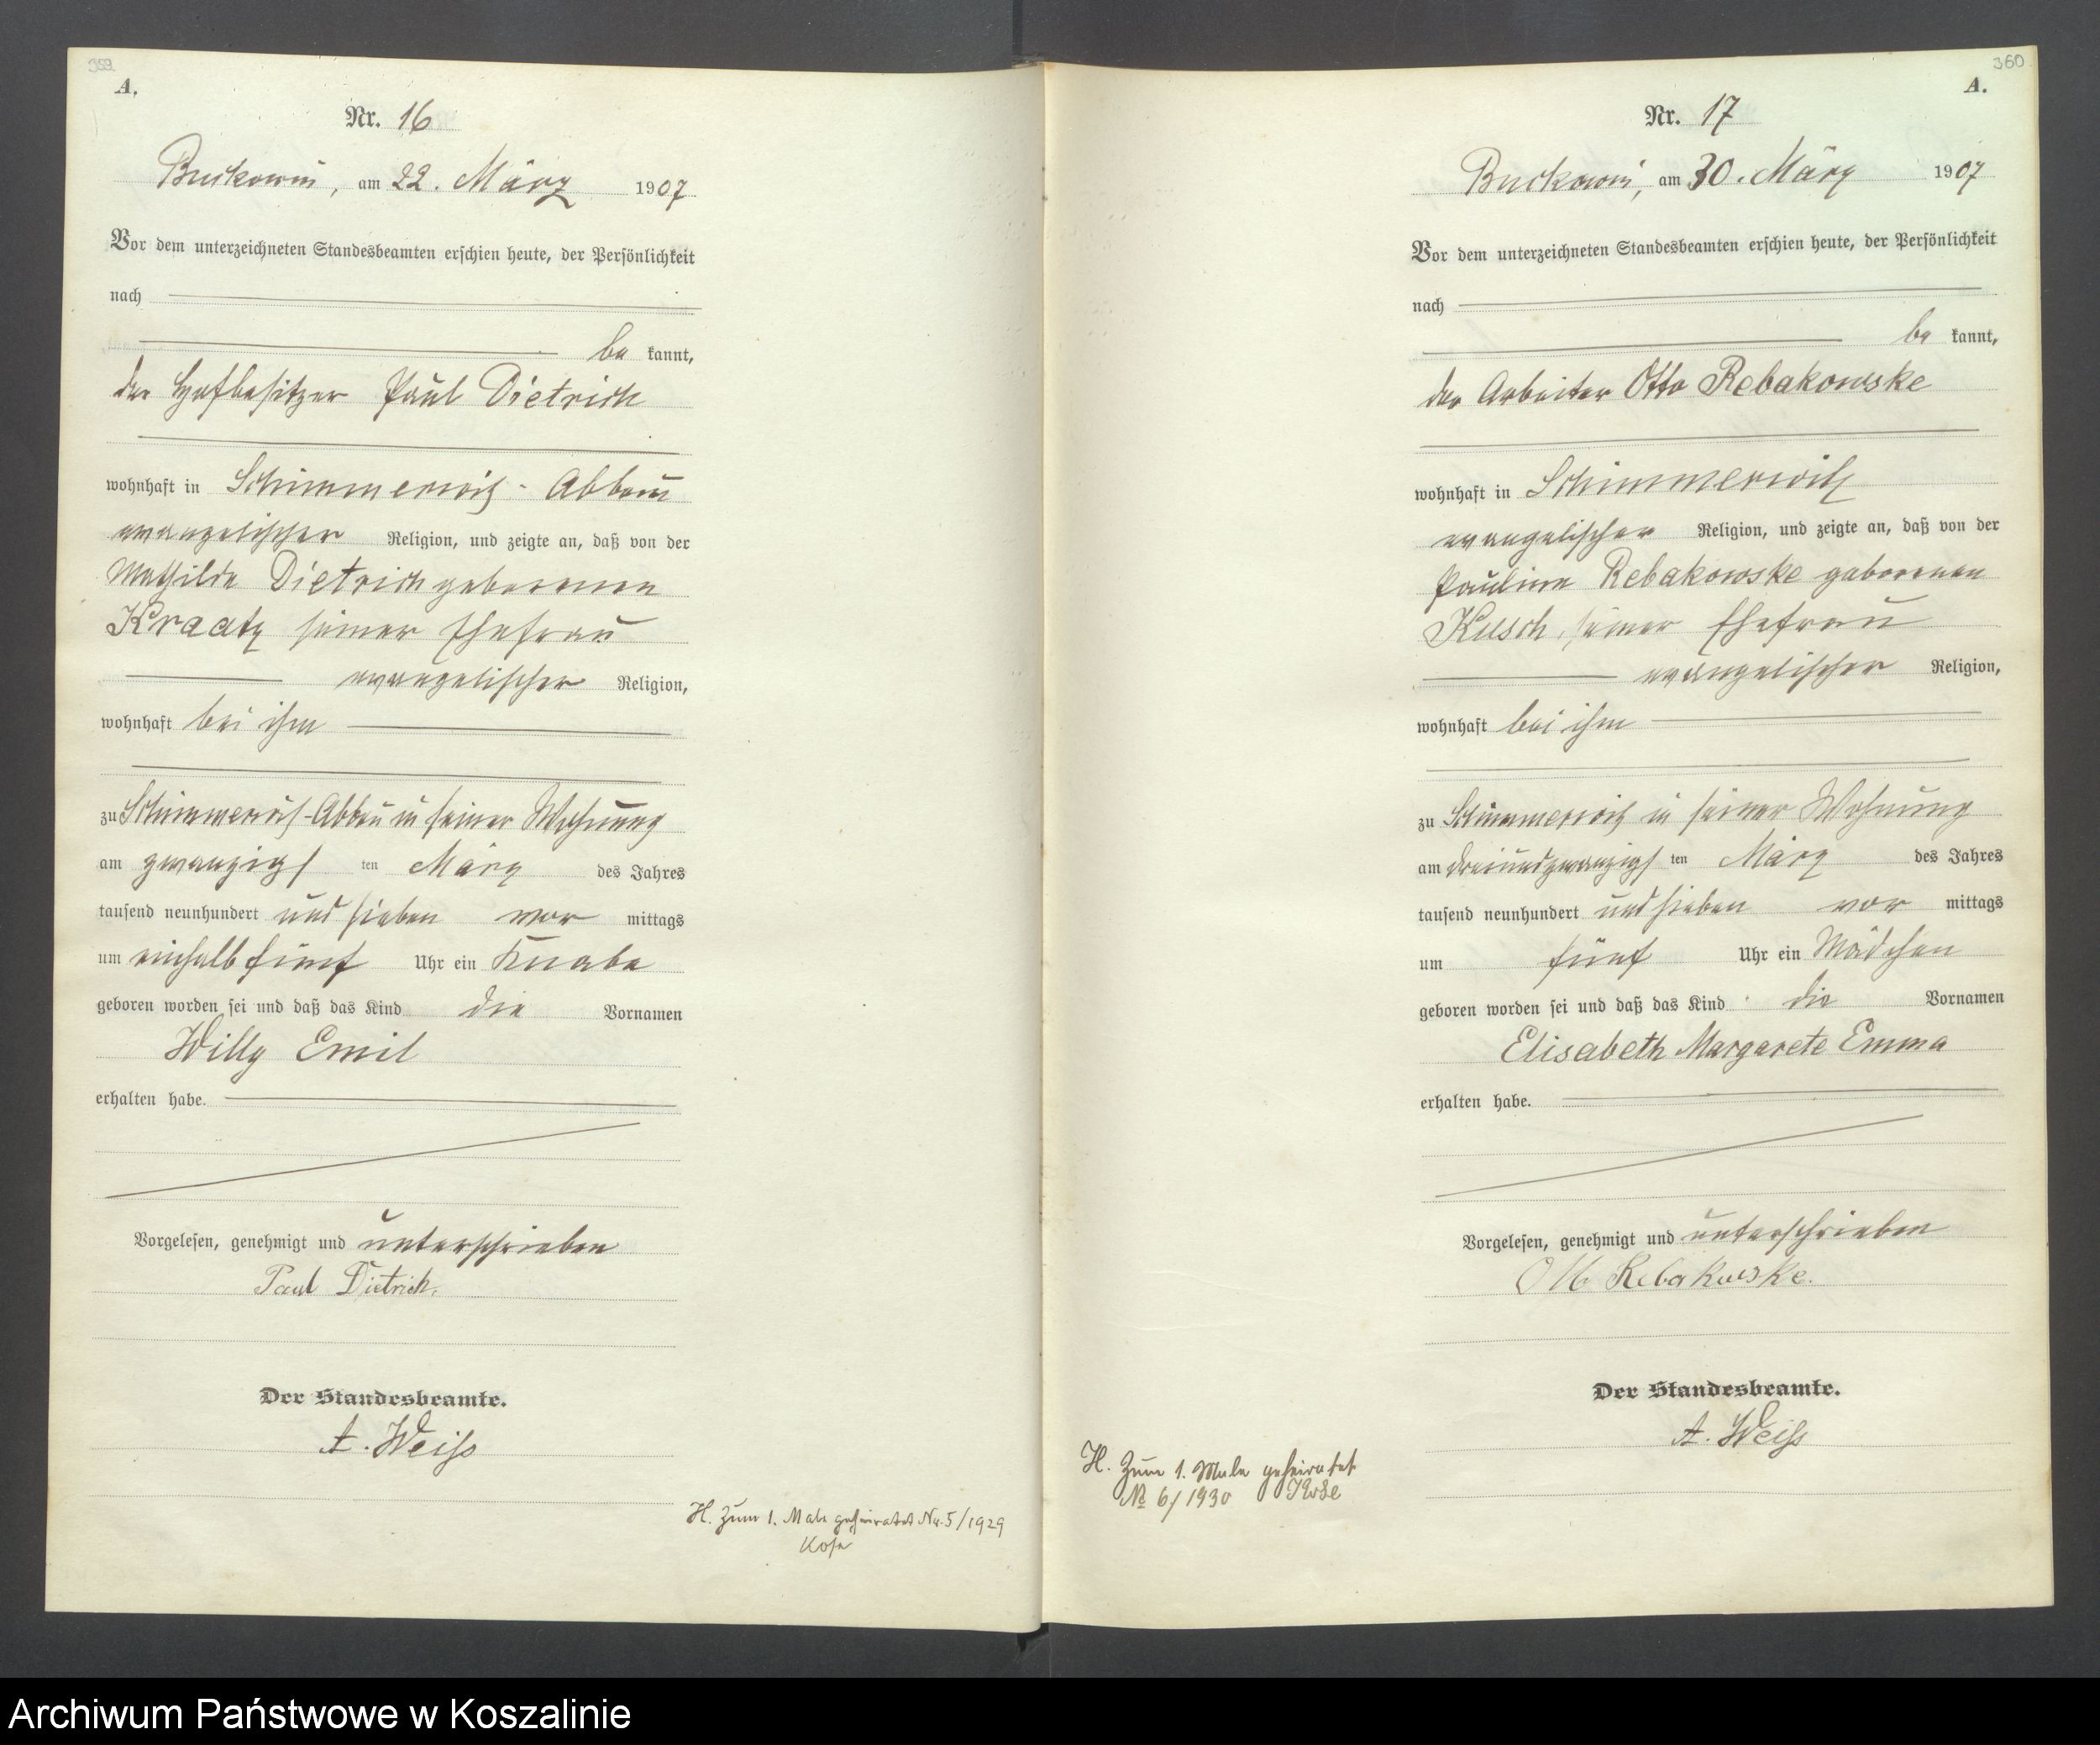 359
A.
Nr. 16
Buckowin, am 22. März 1907
Vor dem unterzeichneten Standesbeamten erschien heute, der Persönlichkeit
nach
be kannt,
der Hofbesitzer Paul Dietrich
wohnhaft in Schimmerwitz - Abbau
evangelischer Religion, und zeigte an, daß von der
Mathilde Dietrich geborenen
Kraatz seiner Ehefrau
evangelischer Religion,
wohnhaft bei ihm
zu Schimmerwitz-Abbau in seiner Wohnung
am zwanzigs ten März des Jahres
tausend neunhundert und sieben vor mittags
um einhalb fünf Uhr ein Knabe
geboren worden sei und daß das Kind die Vornamen
Willy Emil
erhalten habe.
Vorgelesen, genehmigt und unterschrieben
Paul Dietrich.
Der Standesbeamte.
A. Weiss
H. Zum 1. Male geheiratet Nr. 5/1929
360
A.
Nr. 17
Buckowin, am 30. März 1907
Vor dem unterzeichneten Standesbeamten erschien heute, der Persönlichkeit
nach
be kannt,
der Arbeiter Otto Rebakowske
wohnhaft in Schimmerwitz
evangelischer Religion, und zeigte an, daß von der
Pauline Rebakowske geborenen
Kusch, seiner Ehefrau
evangelischer Religion,
wohnhaft bei ihm
zu Schimmerwitz in seiner Wohnung
am dreiundzwanzigs ten März des Jahres
tausend neunhundert und sieben vor mittags
um fünf Uhr ein Mädchen
geboren worden sei und daß das Kind die Vornamen
Elisabeth Margarete Emma
erhalten habe.
Vorgelesen, genehmigt und unterschrieben
Otto Rebakowske.
Der Standesbeamte.
A. Weiss
H. Zum 1. Male geheiratet
№ 6/1930
Archiwum Państwowe w Koszalinie